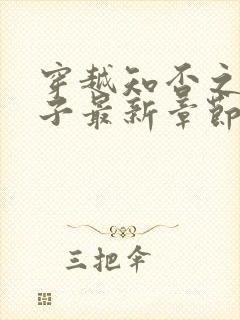 穿越知否之
子最新章节
三把伞